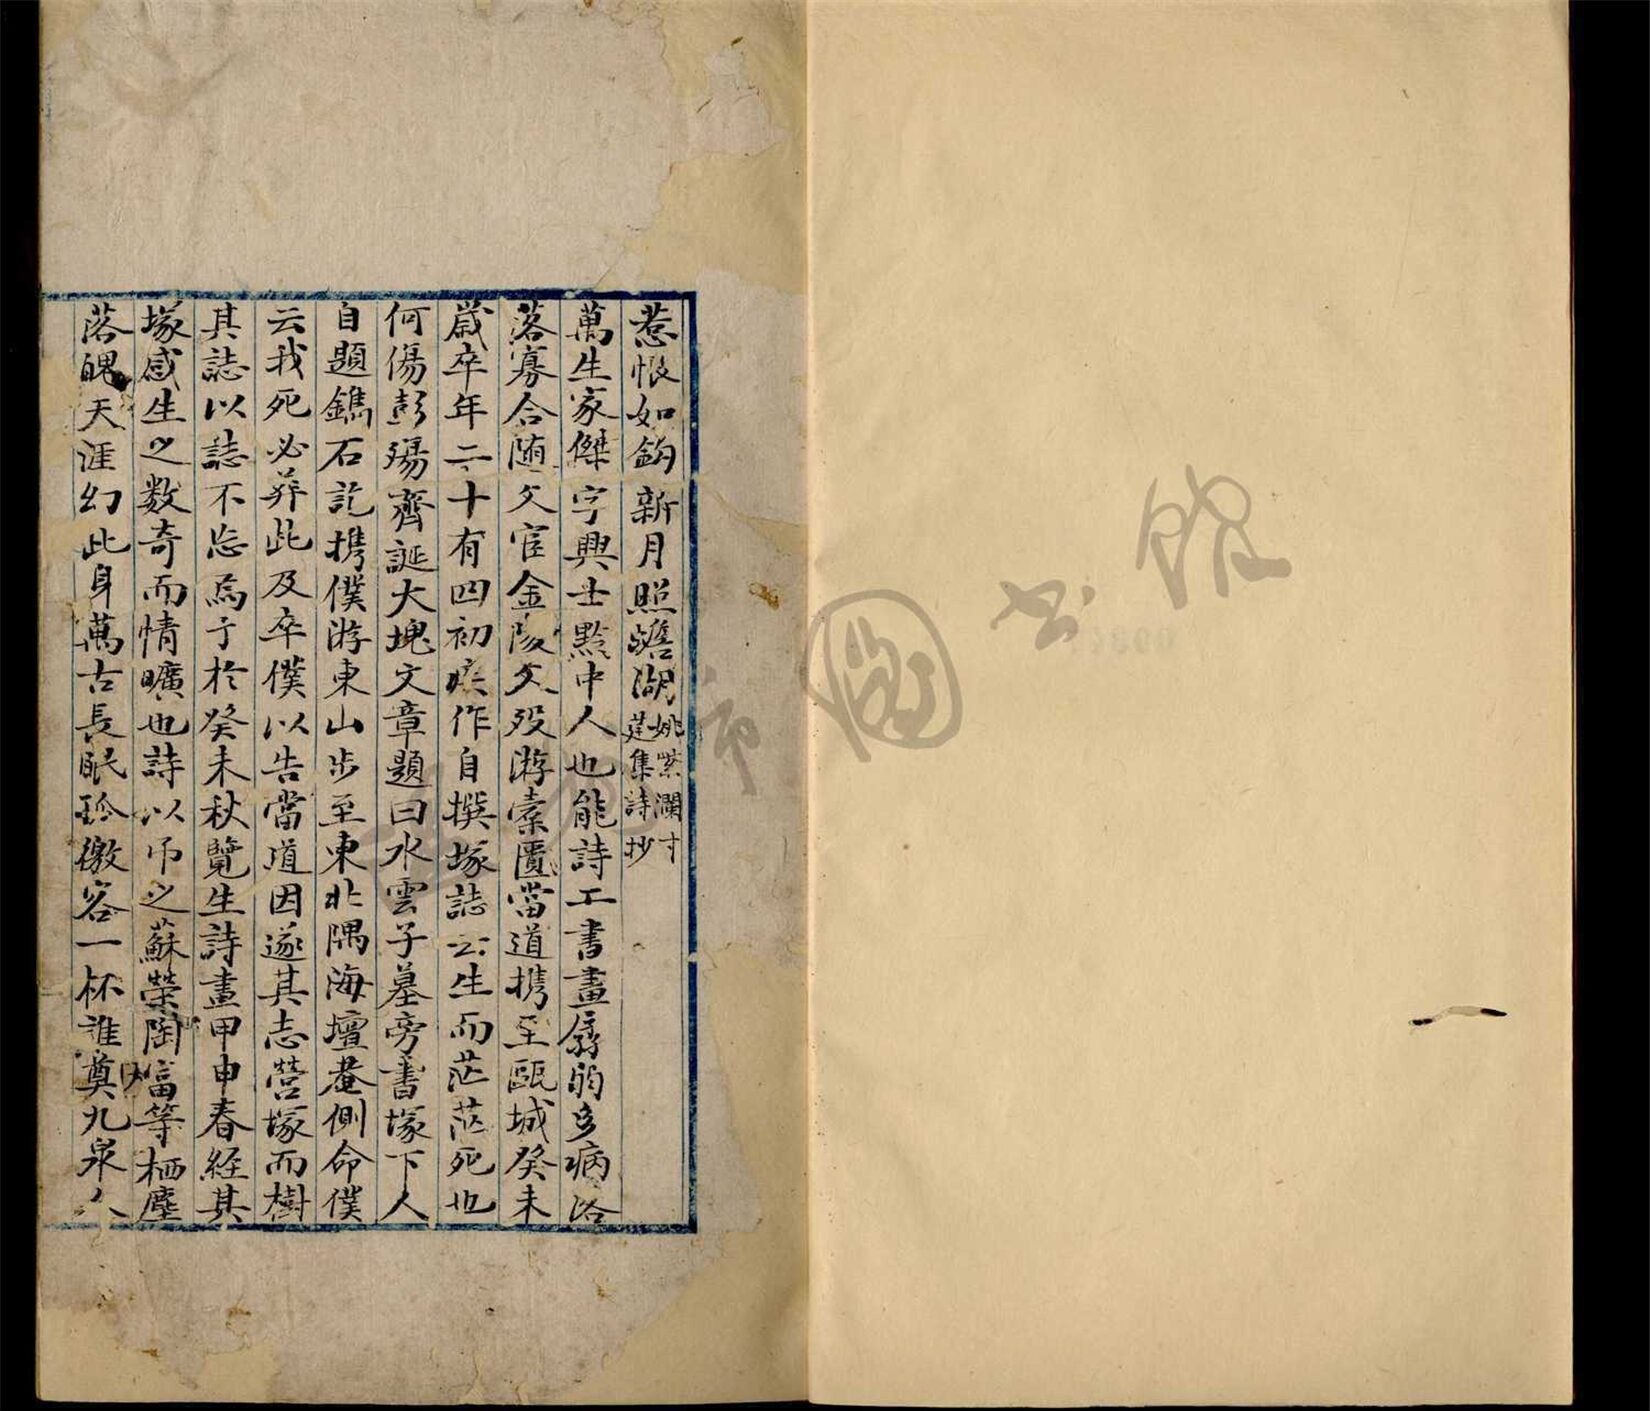 惹恨如鈎新月照蟾湖姚紫瀾寸莛集詩抄
萬生家傑字興士黔中人也能詩工書畫孱弱多病落
落寡合随父宦金陵父歿游槖匱當道携至甌城癸未
歲卒年二十有四初疾作自撰塚誌云生而茫茫死也
何傷彭殤齊誕大塊文章題曰水雲子墓旁書塚下人
自題鐫石訖携僕游東山步至東北隅海壇菴側命僕
云我死必葬此及卒僕以告當道因遂其志營塚而樹
其誌以誌不忘焉予於癸未秋覽生詩畫甲申春経其
塚感生之数奇而情曠也詩以吊之蘇榮陶富等栖塵
落魄天涯幻此身萬古長眠珍傲客一杯誰奠九泉人
市圖書館